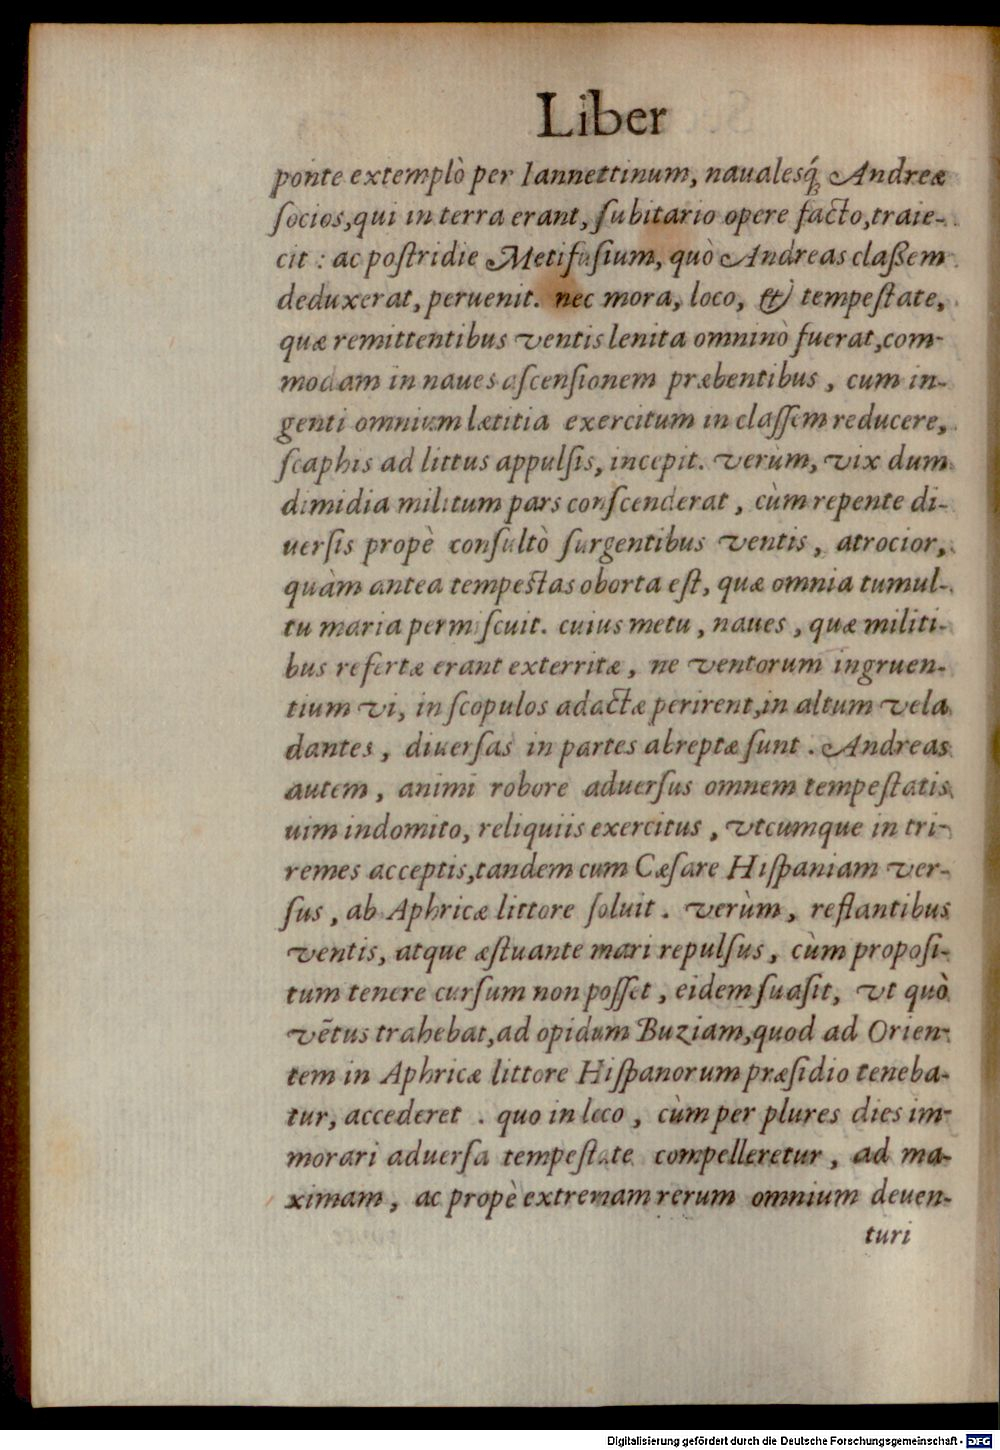 Liber
ponte extemplò per Iannettinum, naualesq́; Andreæ
ſocios,qui in terra erant, ſubitario opere facto,traie-
cit : ac poſtridie Metifuſium, quò Andreas claßem
deduxerat, peruenit. nec mora, loco, & tempeſtate,
quæ remittentibus ventis lenita omninò fuerat,com-
modam in naues aſcenſionem præbentibus , cum in-
genti omnium lætitia exercitum in claſſem reducere,
ſcaphis ad littus appulſis, incepit. verùm, vix dum
dimidia militum pars conſcenderat , cùm repente di-
uerſis propè conſultò ſurgentibus ventis , atrocior,
quàm antea tempeſtas oborta eſt, quæ omnia tumul-
tu maria permiſcuit. cuius metu , naues , quæ militi-
bus refertæ erant exterritæ , ne ventorum ingruen-
tium vi, in ſcopulos adactæ perirent,in altum vela
dantes , diuerſas in partes abreptæ ſunt . Andreas
autem , animi robore aduerſus omnem tempeſtatis
uim indomito, reliquiis exercitus , vtcumque in tri-
remes acceptis,tandem cum Cæſare Hiſpaniam ver-
ſus , ab Aphricæ littore ſoluit . verùm , reflantibus
ventis, atque æſtuante mari repulſus , cùm propoſi-
tum tenere curſum non poſſet , eidem ſuaſit, vt quò
vẽtus trahebat,ad opidum Buziam,quod ad Orien-
tem in Aphricæ littore Hiſpanorum præſidio teneba-
tur, accederet . quo in loco , cùm per plures dies im-
morari aduerſa tempeſtate compelleretur , ad ma-
ximam , ac propè extremam rerum omnium deuen-
turi
Digitalisierung gefördert durch die Deutsche Forschungsgemeinschaft - DFG